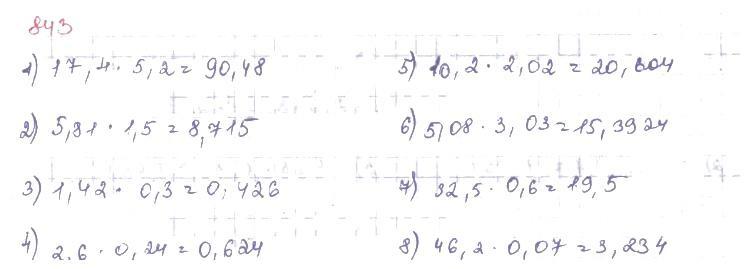 843
1) 17,4 · 5,2 = 90,48
2) 5,81 · 1,5 = 8,715
3) 1,42 · 0,3 = 0,426
4) 2.6 · 0,24 = 0,624
5) 10,2 · 2,02 = 20,604
6) 5,08 · 3,03 = 15,3924
7) 32,5 · 0,6 = 19,5
8) 46,2 · 0,07 = 3,234